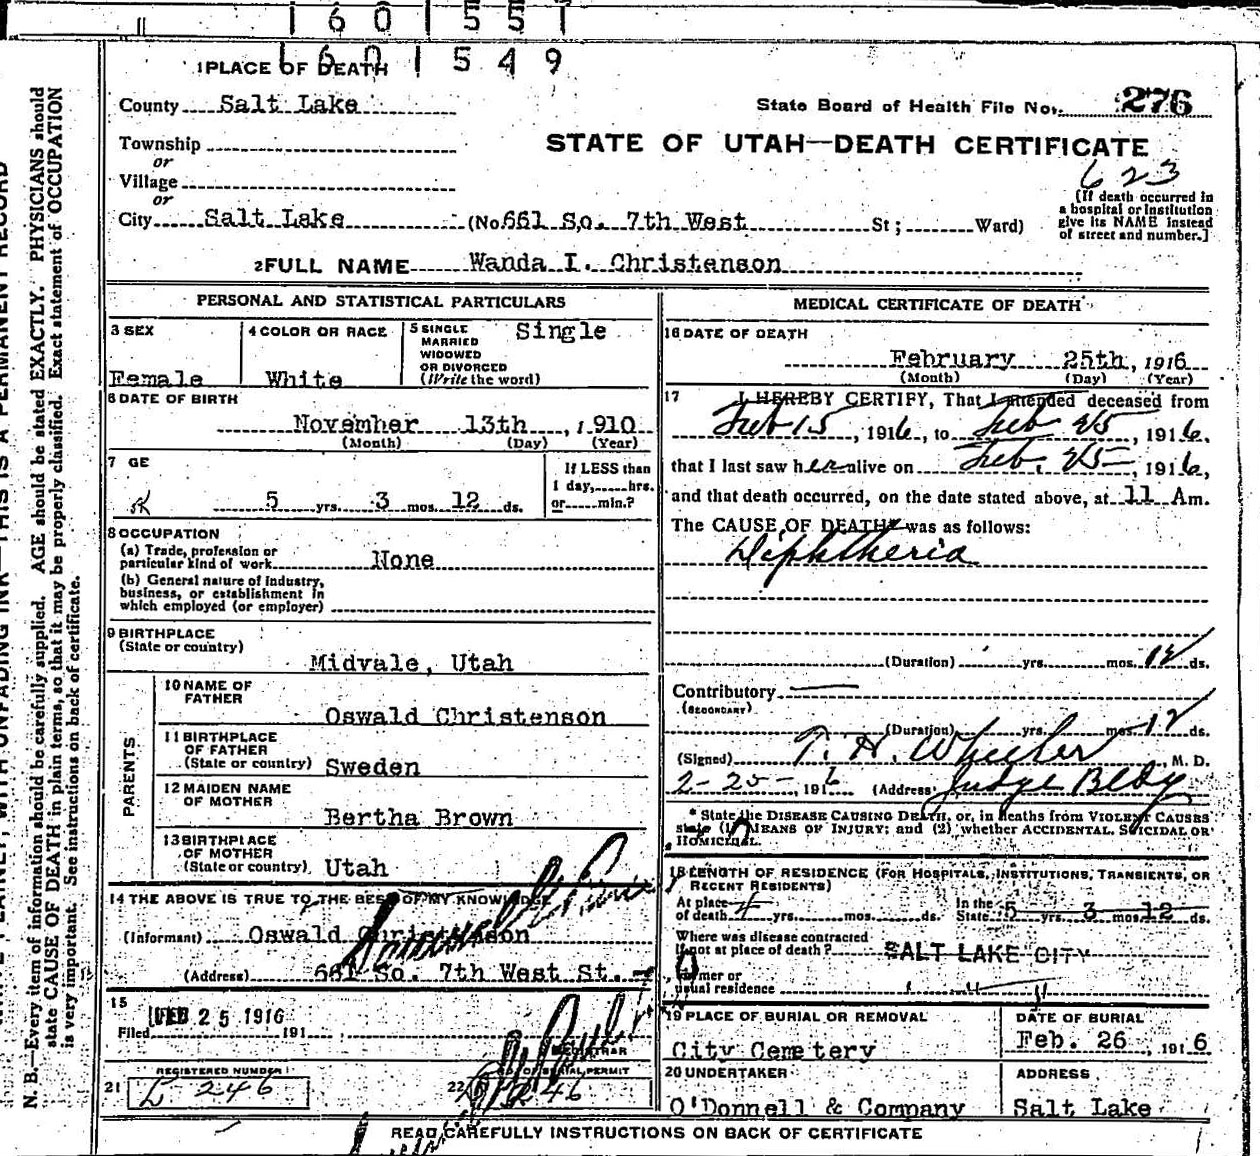 1 6 0 1 5 5 1
1 6 0 1 5 4 9
1 PLACE OF DEATH
County Salt Lake
State Board of Health File No. 276
Township
or
STATE OF UTAH—DEATH CERTIFICATE
Village
or
623
City Salt Lake (No. 661 So. 7th West St; Ward)
[If death occurred in
a hospital or institution
give its NAME instead
of street and number.]
2 FULL NAME Wanda I. Christenson
PERSONAL AND STATISTICAL PARTICULARS
3 SEX
Female
4 COLOR OR RACE
White
5 SINGLE
MARRIED
WIDOWED
OR DIVORCED
(Write the word)
Single
6 DATE OF BIRTH
November 13th, 1910
(Month) (Day) (Year)
7 GE
5 yrs. 3 mos. 12 ds.
If LESS than
1 day, hrs.
or min.?
8 OCCUPATION
(a) Trade, profession or
particular kind of work None
(b) General nature of industry,
business, or establishment in
which employed (or employer)
9 BIRTHPLACE
(State or country)
Midvale, Utah
PARENTS
10 NAME OF
FATHER
Oswald Christenson
11 BIRTHPLACE
OF FATHER
(State or country) Sweden
12 MAIDEN NAME
OF MOTHER
Bertha Brown
13 BIRTHPLACE
OF MOTHER
(State or country) Utah
14 THE ABOVE IS TRUE TO THE BEST OF MY KNOWLEDGE
(Informant) Oswald Christenson
(Address) 661 So. 7th West St.
15
Filed FEB 25 1916 191
REGISTRAR
REGISTERED NUMBER
21 L 246
NO. OF BURIAL PERMIT
22 246
MEDICAL CERTIFICATE OF DEATH
16 DATE OF DEATH
February 25th, 1916
(Month) (Day) (Year)
17 I HEREBY CERTIFY, That I attended deceased from
Feb 15, 1916, to Feb 25, 1916,
that I last saw her alive on Feb. 25, 1916,
and that death occurred, on the date stated above, at 11 Am.
The CAUSE OF DEATH* was as follows:
Diphtheria
(Duration) yrs. mos. 12 ds.
Contributory —
(SECONDARY)
(Duration) yrs. mos. 12 ds.
(Signed) T. H. Wheeler, M. D.
2-25-, 1916 (Address) Judge Bldg
* State the DISEASE CAUSING DEATH, or, in deaths from VIOLENT CAUSES
state (1) MEANS OF INJURY; and (2) whether ACCIDENTAL, SUICIDAL OR
HOMICIDAL.
18 LENGTH OF RESIDENCE (FOR HOSPITALS, INSTITUTIONS, TRANSIENTS, OR
RECENT RESIDENTS)
At place
of death 4 yrs. mos. ds.
In the
State 5 yrs. 3 mos. 12 ds.
Where was disease contracted
if not at place of death? SALT LAKE CITY
Former or
usual residence
19 PLACE OF BURIAL OR REMOVAL
City Cemetery
DATE OF BURIAL
Feb. 26, 1916
20 UNDERTAKER
O'Donnell & Company
ADDRESS
Salt Lake
READ CAREFULLY INSTRUCTIONS ON BACK OF CERTIFICATE
N. B.—Every item of information should be carefully supplied. AGE should be stated EXACTLY. PHYSICIANS should
state CAUSE OF DEATH in plain terms, so that it may be properly classified. Exact statement of OCCUPATION
is very important. See instructions on back of certificate.